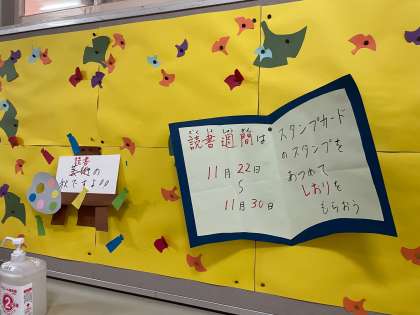 読書
芸術の
秋ですよ
どくしょしゅうかん
読書週間は
11月22日
〜
11月30日
スタンプカード
のスタンプを
あつめて
しおりを
もらおう
2